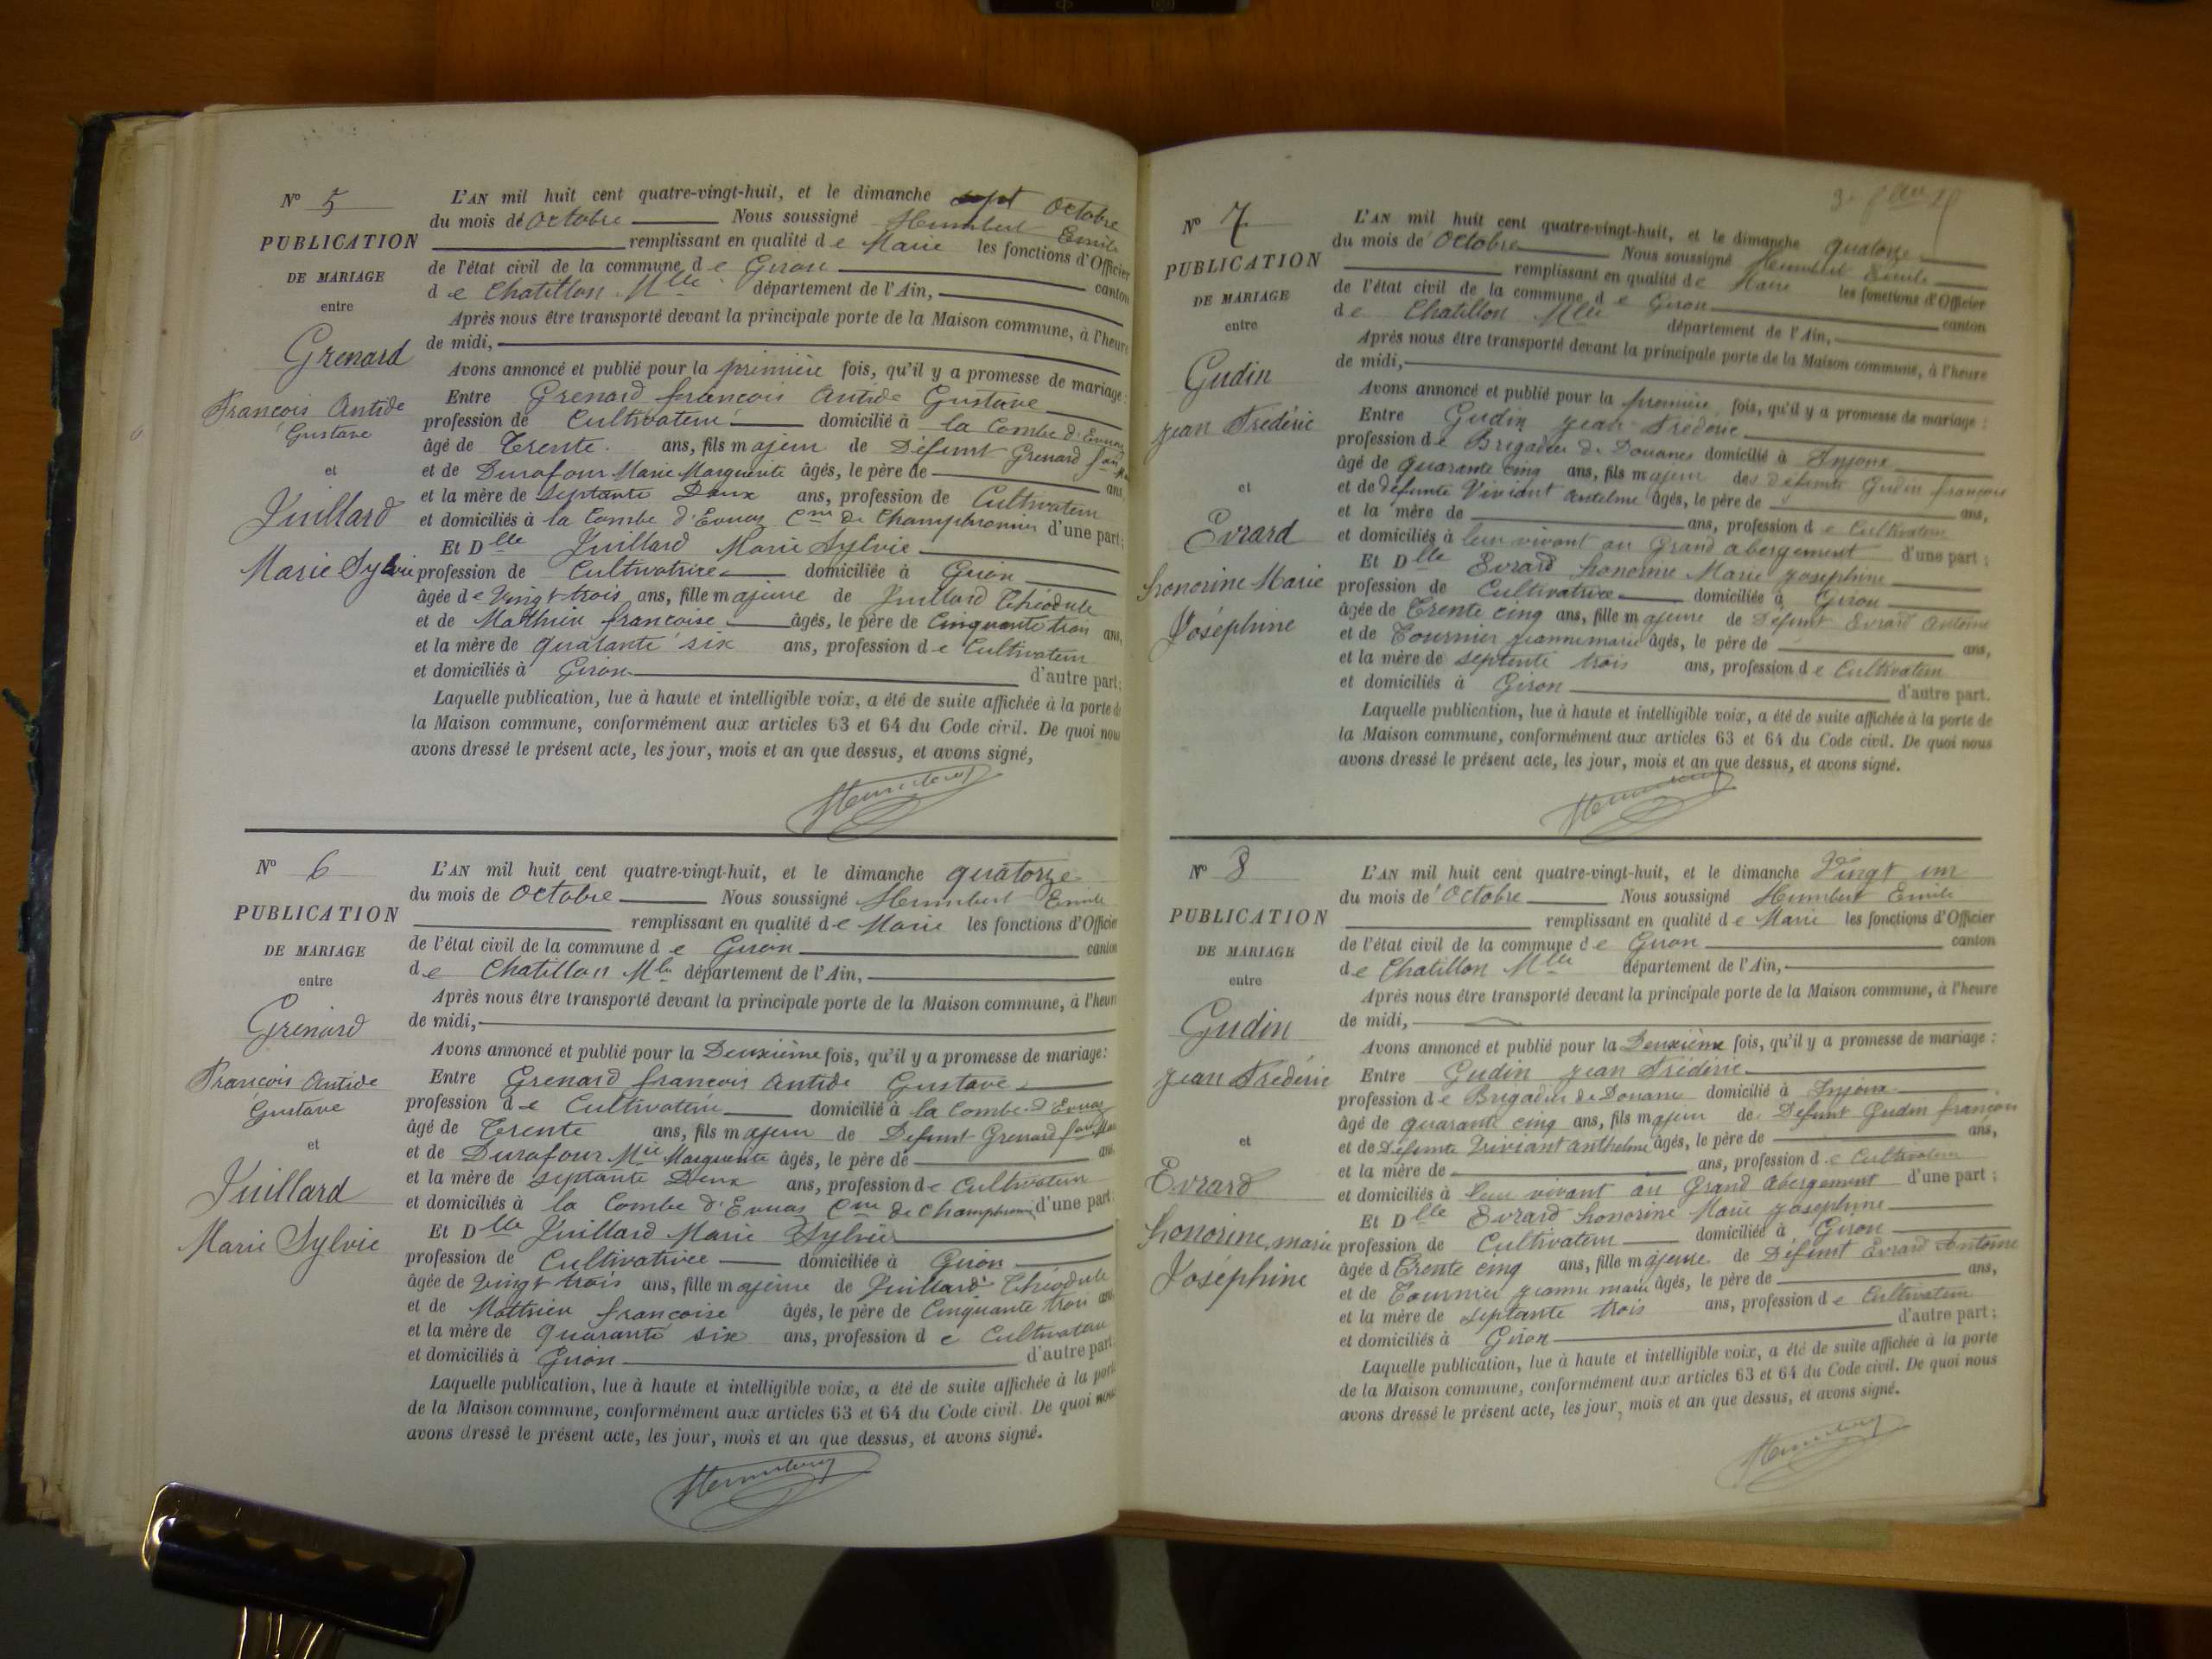 N° 5
PUBLICATION
DE MARIAGE
entre
Grenard
François Antide
Gustave
et
Juillard
Marie Sylvie
L'AN mil huit cent quatre-vingt-huit, et le dimanche sept Octobre
du mois de Octobre Nous soussigné Humbert Emile
remplissant en qualité de Maire les fonctions d'Officier
de l'état civil de la commune de Giron canton
de Chatillon Mlle département de l'Ain,
Après nous être transporté devant la principale porte de la Maison commune, à l'heure
de midi,
Avons annoncé et publié pour la première fois, qu'il y a promesse de mariage:
Entre Grenard françois Antide Gustave
profession de Cultivateur domicilié à la Combe d'Evuaz
âgé de Trente ans, fils majeur de Défunt Grenard
et de Durafour Marie Marguerite âgés, le père de ans,
et la mère de Septante Deux ans, profession de Cultivateur
et domiciliés à la Combe d'Evuaz Cne de Champfromier d'une part;
Et Dlle Juillard Marie Sylvie
profession de Cultivatrice domiciliée à Giron
âgée de Vingt trois ans, fille majeure de Juillard Théodule
et de Mathieu françoise âgés, le père de Cinquante trois ans,
et la mère de quarante six ans, profession de Cultivateur
et domiciliés à Giron d'autre part;
Laquelle publication, lue à haute et intelligible voix, a été de suite affichée à la porte de
la Maison commune, conformément aux articles 63 et 64 du Code civil. De quoi nous
avons dressé le présent acte, les jour, mois et an que dessus, et avons signé,
Humbert
N° 6
PUBLICATION
DE MARIAGE
entre
Grenard
François Antide
Gustave
et
Juillard
Marie Sylvie
L'AN mil huit cent quatre-vingt-huit, et le dimanche quatorze
du mois de Octobre Nous soussigné Humbert Emile
remplissant en qualité de Maire les fonctions d'Officier
de l'état civil de la commune de Giron canton
de Chatillon Mlle département de l'Ain,
Après nous être transporté devant la principale porte de la Maison commune, à l'heure
de midi,
Avons annoncé et publié pour la Deuxième fois, qu'il y a promesse de mariage:
Entre Grenard françois Antide Gustave
profession de Cultivateur domicilié à la Combe d'Evuaz
âgé de Trente ans, fils majeur de Défunt Grenard
et de Durafour Mie Marguerite âgés, le père de ans
et la mère de Septante Deux ans, profession de Cultivateur
et domiciliés à la Combe d'Evuaz Cne de Champfromier d'une part;
Et Dlle Juillard Marie Sylvie
profession de Cultivatrice domiciliée à Giron
âgée de Vingt trois ans, fille majeure de Juillard Théodule
et de Mathieu françoise âgés, le père de Cinquante trois ans
et la mère de quarante six ans, profession de Cultivateur
et domiciliés à Giron d'autre part.
Laquelle publication, lue à haute et intelligible voix, a été de suite affichée à la porte
de la Maison commune, conformément aux articles 63 et 64 du Code civil. De quoi nous
avons dressé le présent acte, les jour, mois et an que dessus, et avons signé.
Humbert
N° 7
PUBLICATION
DE MARIAGE
entre
Gudin
jean Frédéric
et
Evrard
honorine Marie
Joséphine
L'AN mil huit cent quatre-vingt-huit, et le dimanche quatorze
du mois de Octobre Nous soussigné Humbert Emile
remplissant en qualité de Maire les fonctions d'Officier
de l'état civil de la commune de Giron canton
de Chatillon Mlle département de l'Ain,
Après nous être transporté devant la principale porte de la Maison commune, à l'heure
de midi,
Avons annoncé et publié pour la première fois, qu'il y a promesse de mariage:
Entre Gudin jean Frédéric
profession de Brigadier de Douanes domicilié à Injoux
âgé de quarante cinq ans, fils majeur de défunt Gudin françois
et de défunte Viviant Antelme âgés, le père de ans,
et la mère de ans, profession de Cultivateur
et domiciliés à leur vivant au Grand abergement d'une part;
Et Dlle Evrard honorine Marie josephine
profession de Cultivatrice domiciliée à Giron
âgée de Trente cinq ans, fille majeure de Défunt Evrard Antoine
et de Tournier jeanne marie âgés, le père de ans,
et la mère de septente trois ans, profession de Cultivateur
et domiciliés à Giron d'autre part.
Laquelle publication, lue à haute et intelligible voix, a été de suite affichée à la porte de
la Maison commune, conformément aux articles 63 et 64 du Code civil. De quoi nous
avons dressé le présent acte, les jour, mois et an que dessus, et avons signé.
Humbert
N° 8
PUBLICATION
DE MARIAGE
entre
Gudin
jean Frédéric
et
Evrard
honorine marie
Joséphine
L'AN mil huit cent quatre-vingt-huit, et le dimanche Vingt un
du mois de Octobre Nous soussigné Humbert Emile
remplissant en qualité de Maire les fonctions d'Officier
de l'état civil de la commune de Giron canton
de Chatillon Mlle département de l'Ain,
Après nous être transporté devant la principale porte de la Maison commune, à l'heure
de midi,
Avons annoncé et publié pour la Deuxième fois, qu'il y a promesse de mariage:
Entre Gudin jean Frédéric
profession de Brigadier de Douane domicilié à Injoux
âgé de quarante cinq ans, fils majeur de Défunt Gudin françois
et de Défunte Viviant anthelme âgés, le père de ans,
et la mère de ans, profession de Cultivateur
et domiciliés à leur vivant au Grand Abergement d'une part;
Et Dlle Evrard honorine Marie josephine
profession de Cultivateur domiciliée à Giron
âgée de Trente cinq ans, fille majeure de Défunt Evrard Antoine
et de Tournier jeanne marie âgés, le père de ans,
et la mère de septante trois ans, profession de Cultivateur
et domiciliés à Giron d'autre part;
Laquelle publication, lue à haute et intelligible voix, a été de suite affichée à la porte
de la Maison commune, conformément aux articles 63 et 64 du Code civil. De quoi nous
avons dressé le présent acte, les jour, mois et an que dessus, et avons signé.
Humbert